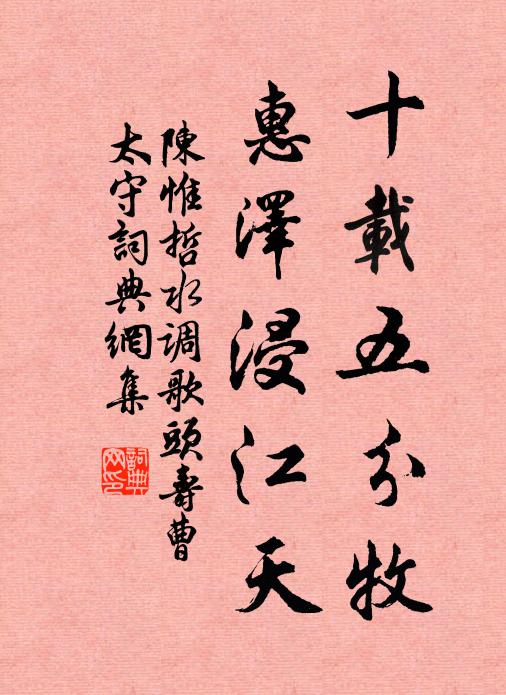 十載五分牧
惠澤浸江天
陳惟哲水调歌頭壽曹
太守詞典網集
詞典
网印